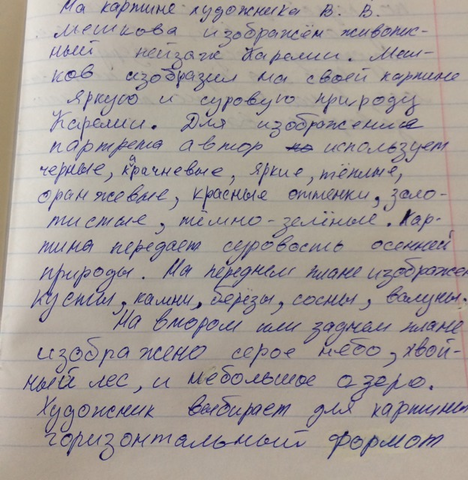 На картине художника В. В.
Мешкова изображён живопис-
ный пейзаж Карелии. Меш-
ков изобразил на своей картине
яркую и суровую природу
Карелии. Для изображения
партрета автор использует
черные, крачневые, яркие, тёплые,
оранжевые, красные оттенки, золо-
тистые, тёмно-зелёные. Кар-
тина передает суровость осенней
природы. На переднем плане изображен
кусты, камни, берёзы, сосны, валуны.
На втором или заднем плане
изображено серое небо, хвой-
ный лес, и небольшое озеро.
Художник выбирает для картины
горизонтальный формат